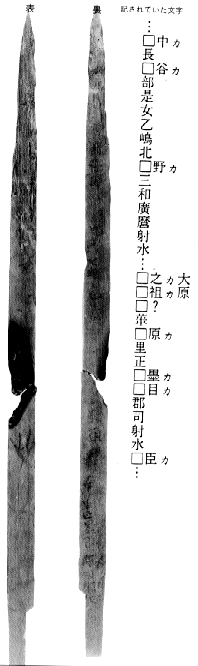 表
裏
記されていた文字
…□中カ長□谷カ部是女乙嶋北□野カ三和廣麿射水…□之カ□祖カ□?華□原カ里正□墨カ□目カ郡司射水□臣カ…
大原